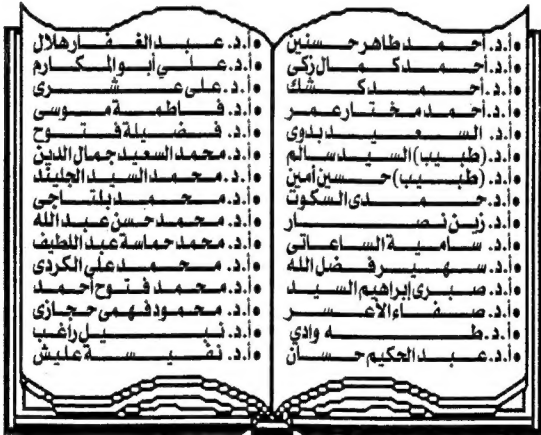 • أ.د. أحمد طاهر حسنين
• أ.د. أحمد كمال زكى
• أ.د. أحمد كشك
• أ.د. أحمد مختار عمر
• أ.د. السعيد بدوى
• أ.د. (طبيب) السيد سالم
• أ.د. (طبيب) حسين أمين
• أ.د. حمدى السكوت
• أ.د. زين نصار
• أ.د. سامية الساعاتى
• أ.د. سهير فضل الله
• أ.د. صبرى إبراهيم السيد
• أ.د. صفاء الأعسر
• أ.د. طه وادي
• أ.د. عبد الحكيم حسان
• أ.د. عبد الغفار هلال
• أ.د. على أبو المكارم
• أ.د. على عشرى
• أ.د. فاطمة موسى
• أ.د. فضيلة فتوح
• أ.د. محمد السعيد جمال الدين
• أ.د. محمد السيد الجليند
• أ.د. محمد بلتاجى
• أ.د. محمد حسن عبد الله
• أ.د. محمد حماسة عبد اللطيف
• أ.د. محمد على الكردى
• أ.د. محمد فتوح أحمد
• أ.د. محمود فهمى حجازى
• أ.د. نبيل راغب
• أ.د. نفيسة عليش